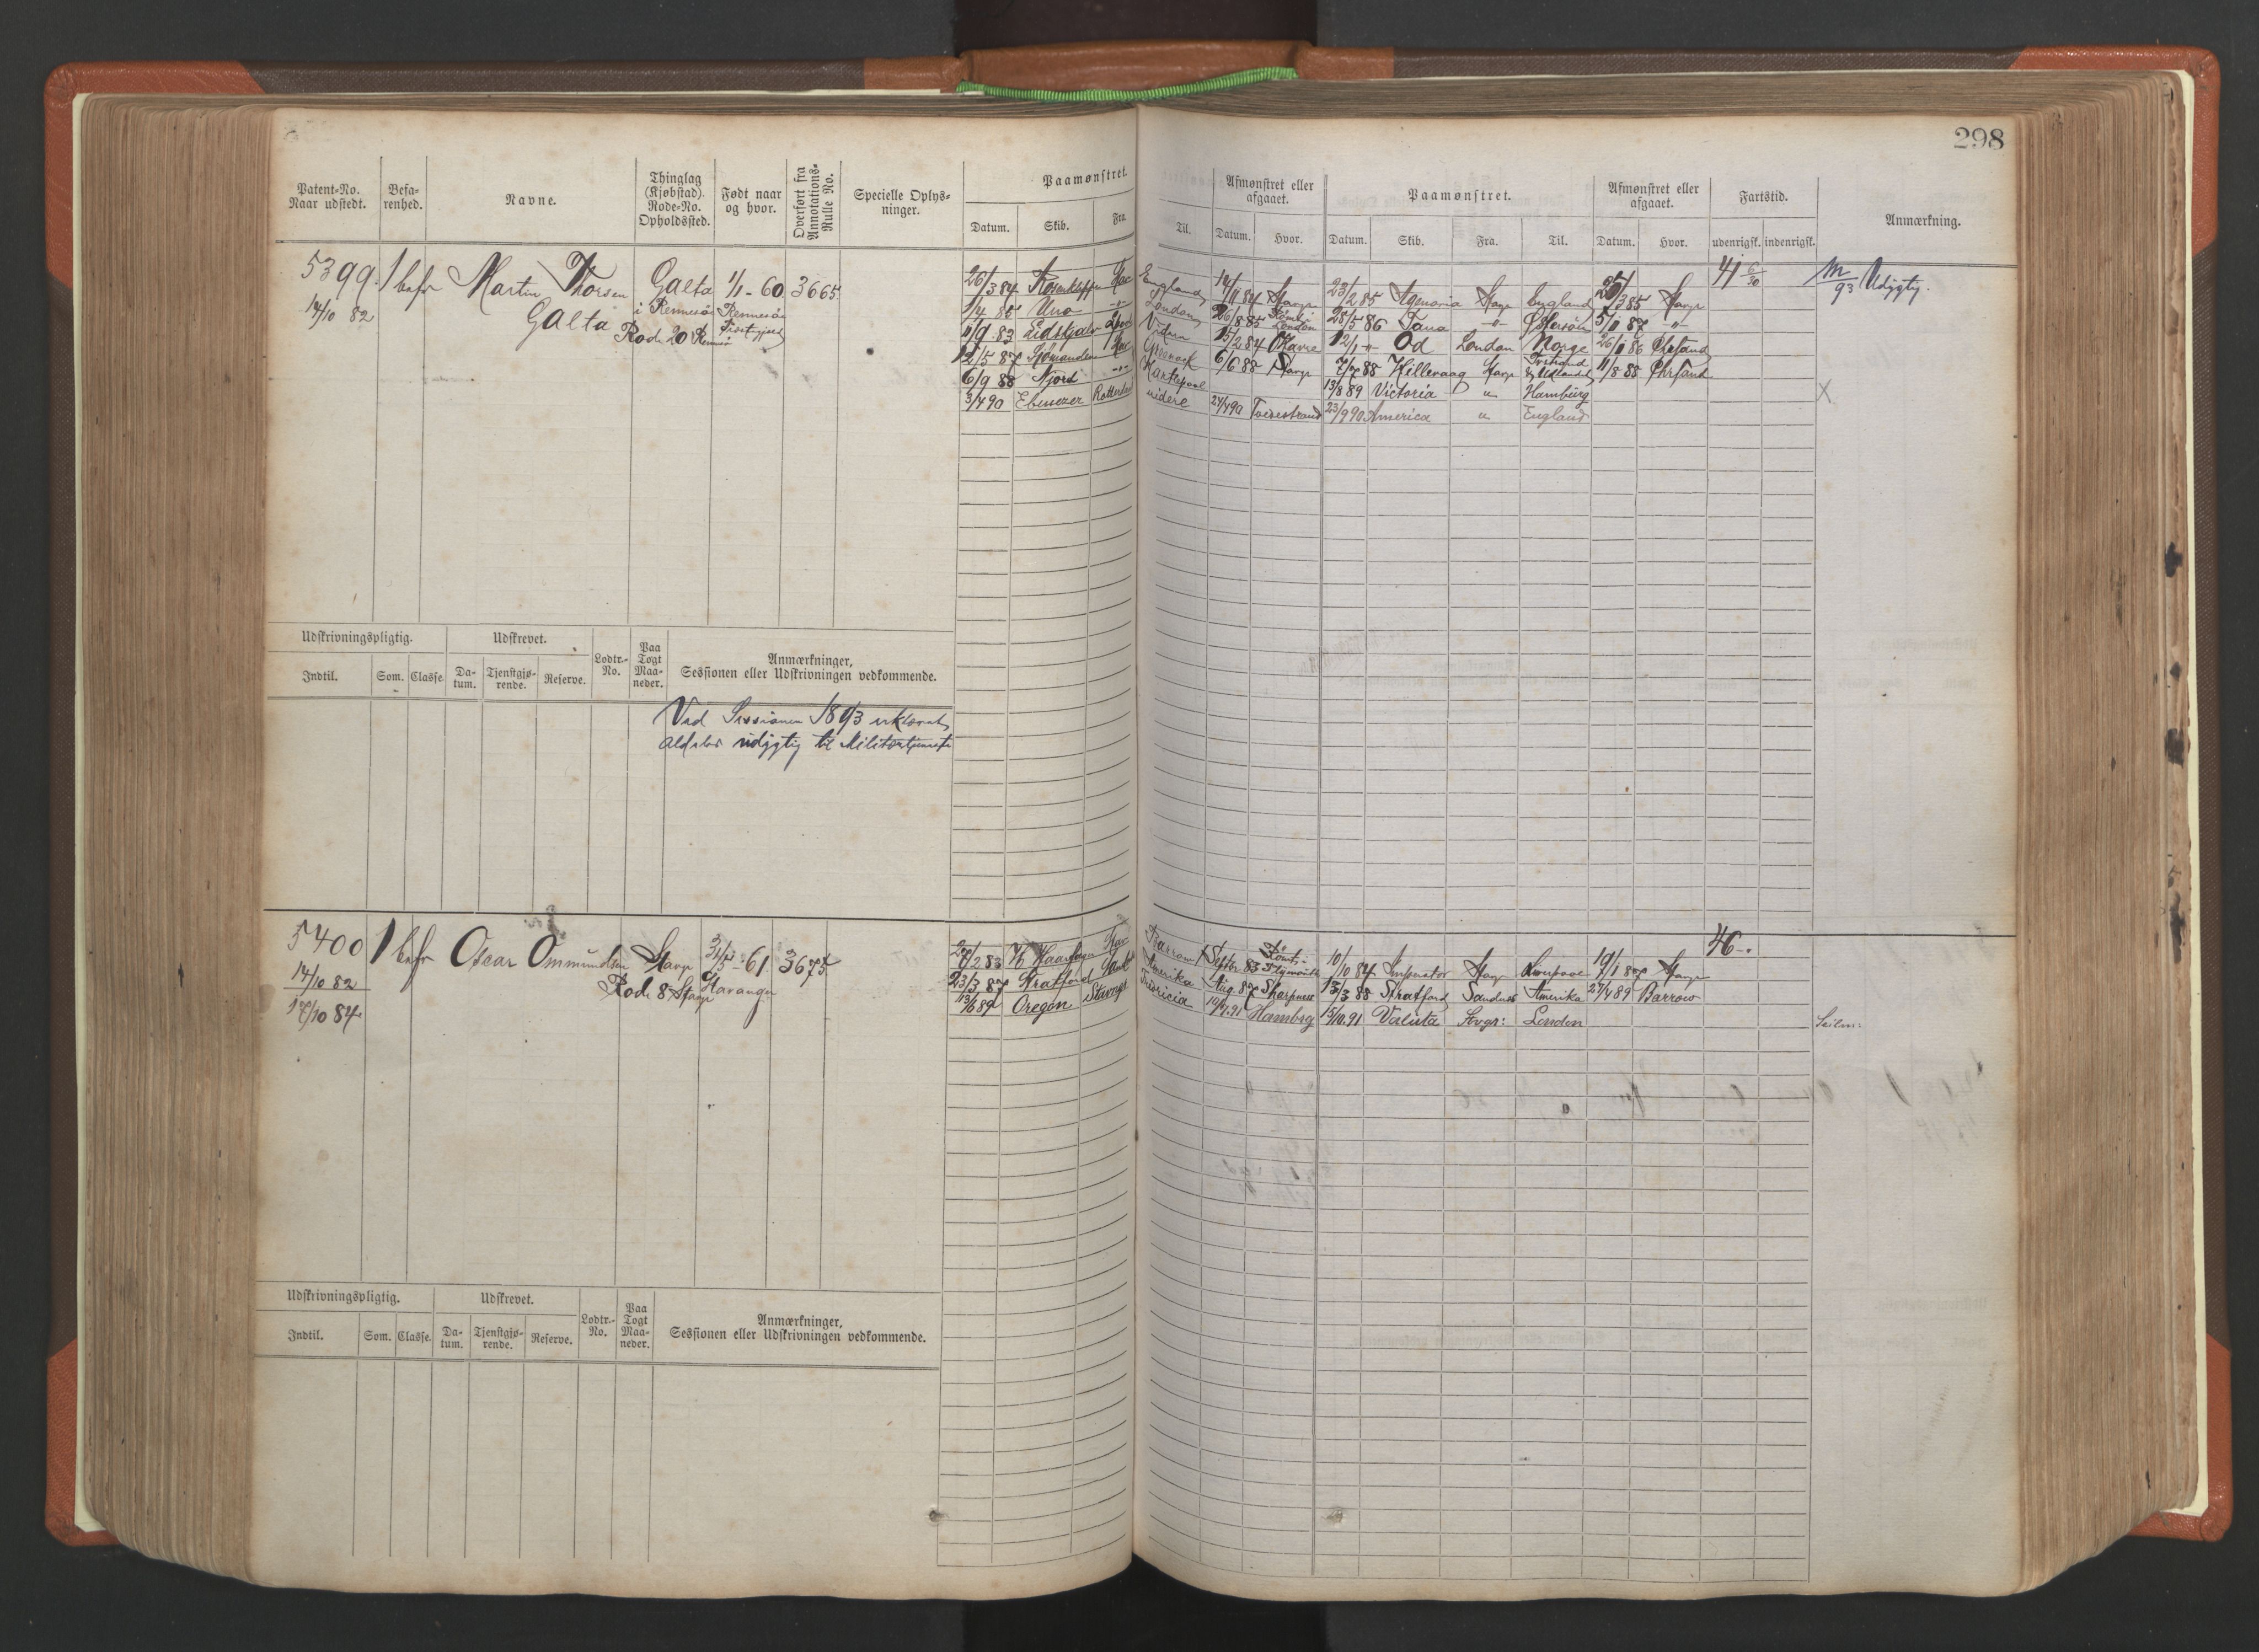 298
Patent-No. Naar udstedt. | Befarenhed. | Navne. | Thinglag (Kjøbstad). Rode-No. Opholdssted. | Født naar og hvor. | Overført fra Annotations-Rulle No. | Specielle Oplysninger. | Paamønstret. Datum. Skib. Fra. Til. | Afmønstret eller afgaaet. Datum. Hvor. | Paamønstret. Datum. Skib. Fra. Til. | Afmønstret eller afgaaet. Datum. Hvor. | Fartstid. udenrigsk. indenrigsk. | Anmærkning.
5399. 1 befr Martin Thorsen Galta 1/1-60 3665
14/10 82 Galta i Rennesø Rennesø
Rode 20 Rennesø Præstegjeld
26/3 84 Stav England 14/11 84 Stavgr 23/2 85 Agenoria Stavgr England 3 85 Stavgr 41 6/30 m/93 Udygtig.
1/4 85 Uno -"- London 26/8 85 London 28/5 86 Tana -"- Østersøen 5/11 87 -"-
11/9 83 Lidskjalv 15/2 84 Havre 12/1 -"- Od London Norge 26/1 86 Chrsand
12/5 87 Sjømanden Greenock 6/6 88 Stavgr 7/7 88 Hillevaag Stavgr & Udlandet 11/8 88 Chrsand
6/9 88 Njord -"- Hartepool 13/8 89 Victoria " Hamburg X
3/4 90 Ebenezer Rotterdam videre 24/4 90 Tvedestrand 23/9 90 America " England
Udskrivningspligtig. | Udskrevet. | Lodtr.-No. | Paa Togt Maaneder. | Anmærkninger, Sessionen eller Udskrivningen vedkommende.
Indtil. | Som. | Classe. | Datum. | Tjenstgjørende. | Reserve.
Ved Sessionen 1893 erklæret
aldeles udygtig til Militærtjeneste
5400 1 befr Oscar Ommundsen Stavgr 31/5-61 3675
14/10 82 Rode 8 Stavgr Stavanger
17/10 84
27/2 83 Barrow Septbr 83 Plymouth 10/10 84 Imperator Stavgr Liverpool 19/1 87 Stavgr 46 -"
23/3 87 Stratford Amerika Aug 87 Sharpness 13/3 88 Stratford Sandnes Amerika 27/4 89 Barrow
13/6 89 Oregon Stavnger Hambrg 15/10.91 Valuta Svgr: London Seilm:
Udskrivningspligtig. | Udskrevet. | Lodtr.-No. | Paa Togt Maaneder. | Anmærkninger, Sessionen eller Udskrivningen vedkommende.
Indtil. | Som. | Classe. | Datum. | Tjenstgjørende. | Reserve.